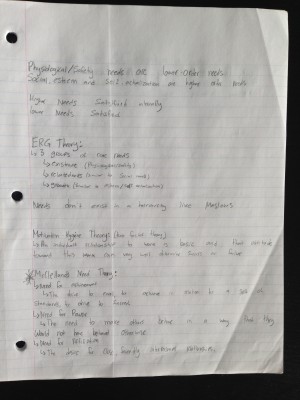 Physological/Safety needs are lower order needs
Social, esteem and self actualization are higher order needs
Higher Needs Satisfied internally
Lower Needs Satisfied
ERG Theory:
↳ 3 groups of core needs
↳ existence (Physological/safety)
↳ relatedness (similar to social needs)
↳ growth (similar to esteem/self actualization)
Needs don't exist in a hierarchy like Maslows
Motivation Hygiene Theory: (two factor theory)
↳ An individuals relationship to work is basic and their attitude
toward this work can very well determine success or failure
*McClellands Need Theory:
↳ Need for achievement
↳ The drive to excel, to achieve in relation to a set of
standards, to strive to succeed
↳ Need for Power
↳ The need to make others behave in a way that they
would not have behaved otherwise
↳ Need for Affiliation
↳ The desire for close, friendly interpersonal relationships